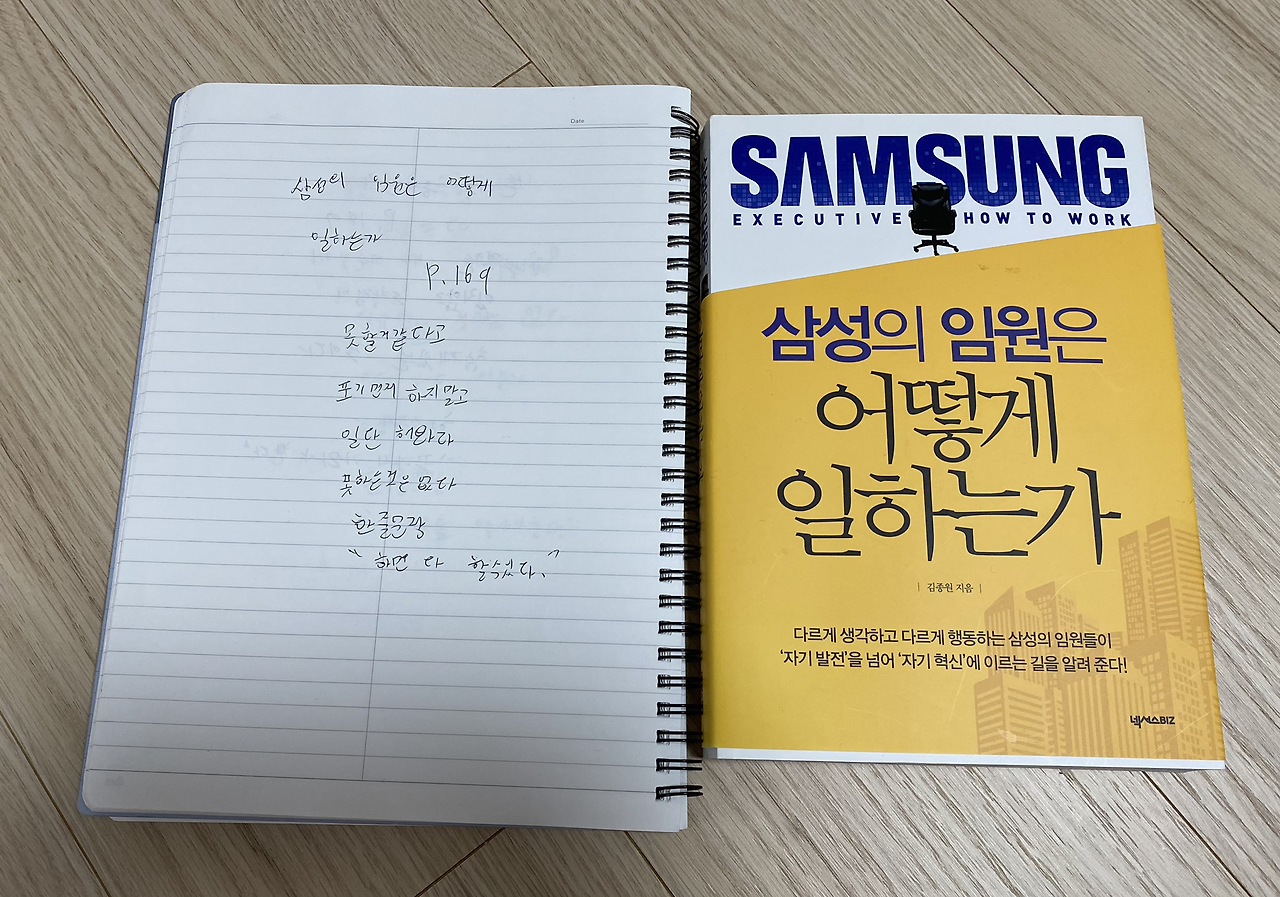 Date
삼성의 임원은 어떻게
일하는가
P.169
못할거같다고
포기먼저 하지말고
일단 해봐라
못하는것은 없다
한줄문장
"하면 다 할수있다."
SAMSUNG
EXECUTIVE HOW TO WORK
삼성의 임원은
어떻게
일하는가
| 김종원 지음 |
다르게 생각하고 다르게 행동하는 삼성의 임원들이
'자기 발전'을 넘어 '자기 혁신'에 이르는 길을 알려 준다!
넥서스BIZ